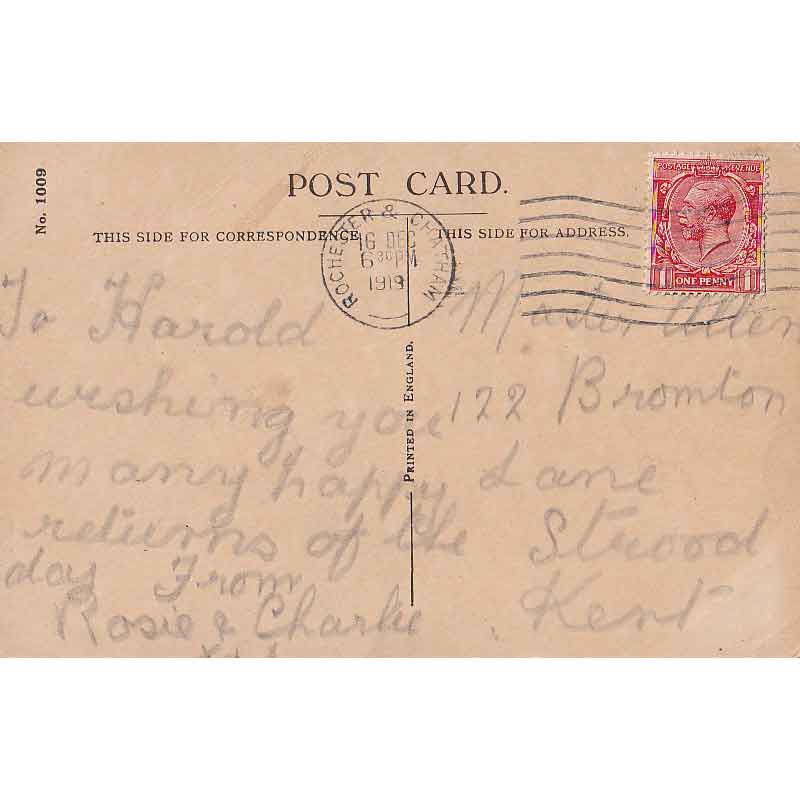 No. 1009
POST CARD.
THIS SIDE FOR CORRESPONDENCE
THIS SIDE FOR ADDRESS.
ROCHESTER & CHATHAM
16 DEC
6 30 PM
1919
POSTAGE REVENUE
1 ONE PENNY 1
To Harold
wishing you
many happy
returns of the
day From
Rosie & Charlie
PRINTED IN ENGLAND.
Master Allen
122 Bromton
Lane
Strood
Kent